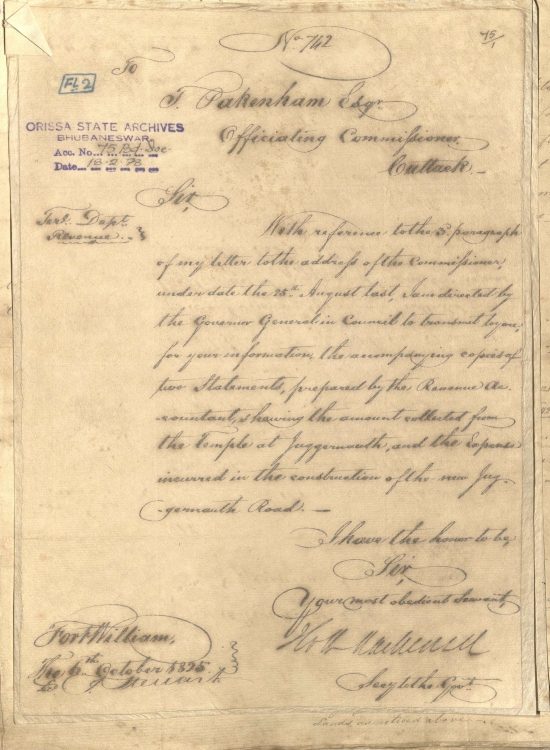 No. 742
75/1
To
FL2
T. Pakenham Esqr.
ORISSA STATE ARCHIVES
BHUBANESWAR
Officiating Commissioner,
Acc. No. 75 Bd. Sec
Date 18-2-78
Cuttack —
Sir,
Terl. Dept.
Revenue.
With reference to the 3d. paragraph
of my letter to the address of the Commissioner,
under date the 25th. August last, I am directed by
the Governor General in Council to transmit to you,
for your information, the accompanying copies of
two Statements, prepared by the Revenue Ac-
countant, showing the amount collected from
the Temple at Juggernauth, and the Expense
incurred in the construction of the new Jug-
gernauth Road. —
I have the honor to be,
Sir,
Your most obedient Servant,
Fort William,
The 6th. October 1825
Holt Mackenzie
Secy. to the Govt.